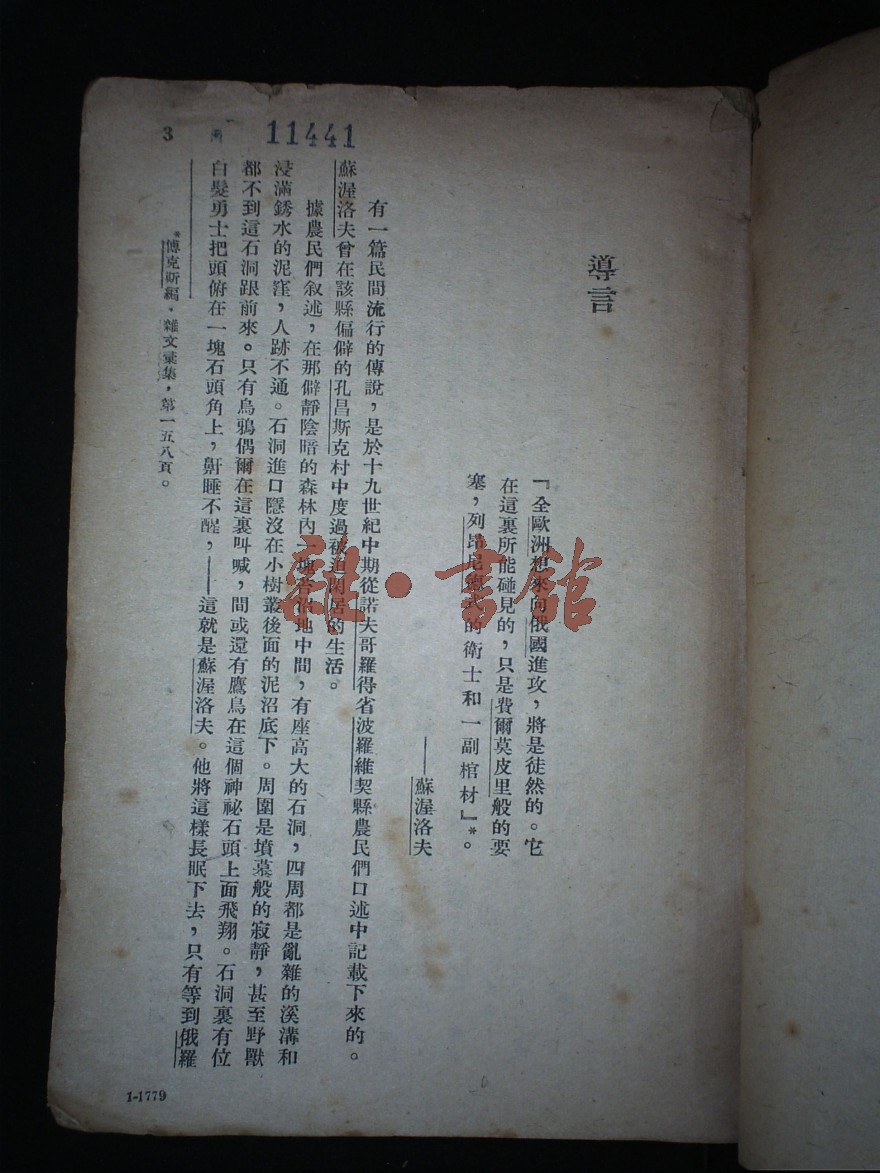 導言
『全歐洲想來向俄國進攻,將是徒然的。它
在這裏所能碰見的,只是費爾莫皮里般的要
塞,列昂尼德式的衛士和一副棺材』*。
——蘇渥洛夫
有一篇民間流行的傳說,是於十九世紀中期從諾夫哥羅得省波羅維契縣農民們口述中記載下來的。
蘇渥洛夫曾在該縣偏僻的孔昌斯克村中度過被迫閑居的生活。
據農民們叙述,在那僻靜陰暗的森林內一塊苔沼地中間,有座高大的石洞,四周都是亂雜的溪溝和
浸滿銹水的泥窪,人跡不通。石洞進口隱沒在小樹叢後面的泥沼底下。周圍是墳墓般的寂靜,甚至野獸
都不到這石洞跟前來。只有烏鴉偶爾在這裏叫喊,間或還有鷹鳥在這個神祕石頭上面飛翔。石洞裏有位
白髮勇士把頭俯在一塊石頭角上,鼾睡不醒,——這就是蘇渥洛夫。他將這樣長眠下去,只有等到俄羅
*傅克斯編,雜文彙集,第一五八頁。
3
11441
1-1779
雜·書館